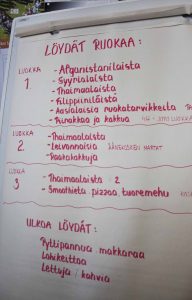 LÖYDÄT RUOKAA:
LUOKKA 1.
- Afganistanilaista
- Syyrialaista
- Thaimaalaista
- Filippiiniläistä
- Aasialaisia ruokatarvikkeita
- Piirakkaa ja kakkua
LUOKKA 2
- Thaimaalaista
- Leivonnaisia
- Raakakakkuja
LUOKKA 3
- Thaimaalaista 2
- Smoothieta pizzaa tuoremehu
ULKOA LÖYDÄT:
Pyttipannua makkaraa
Lohikeittoa
Lettuja / kahvia